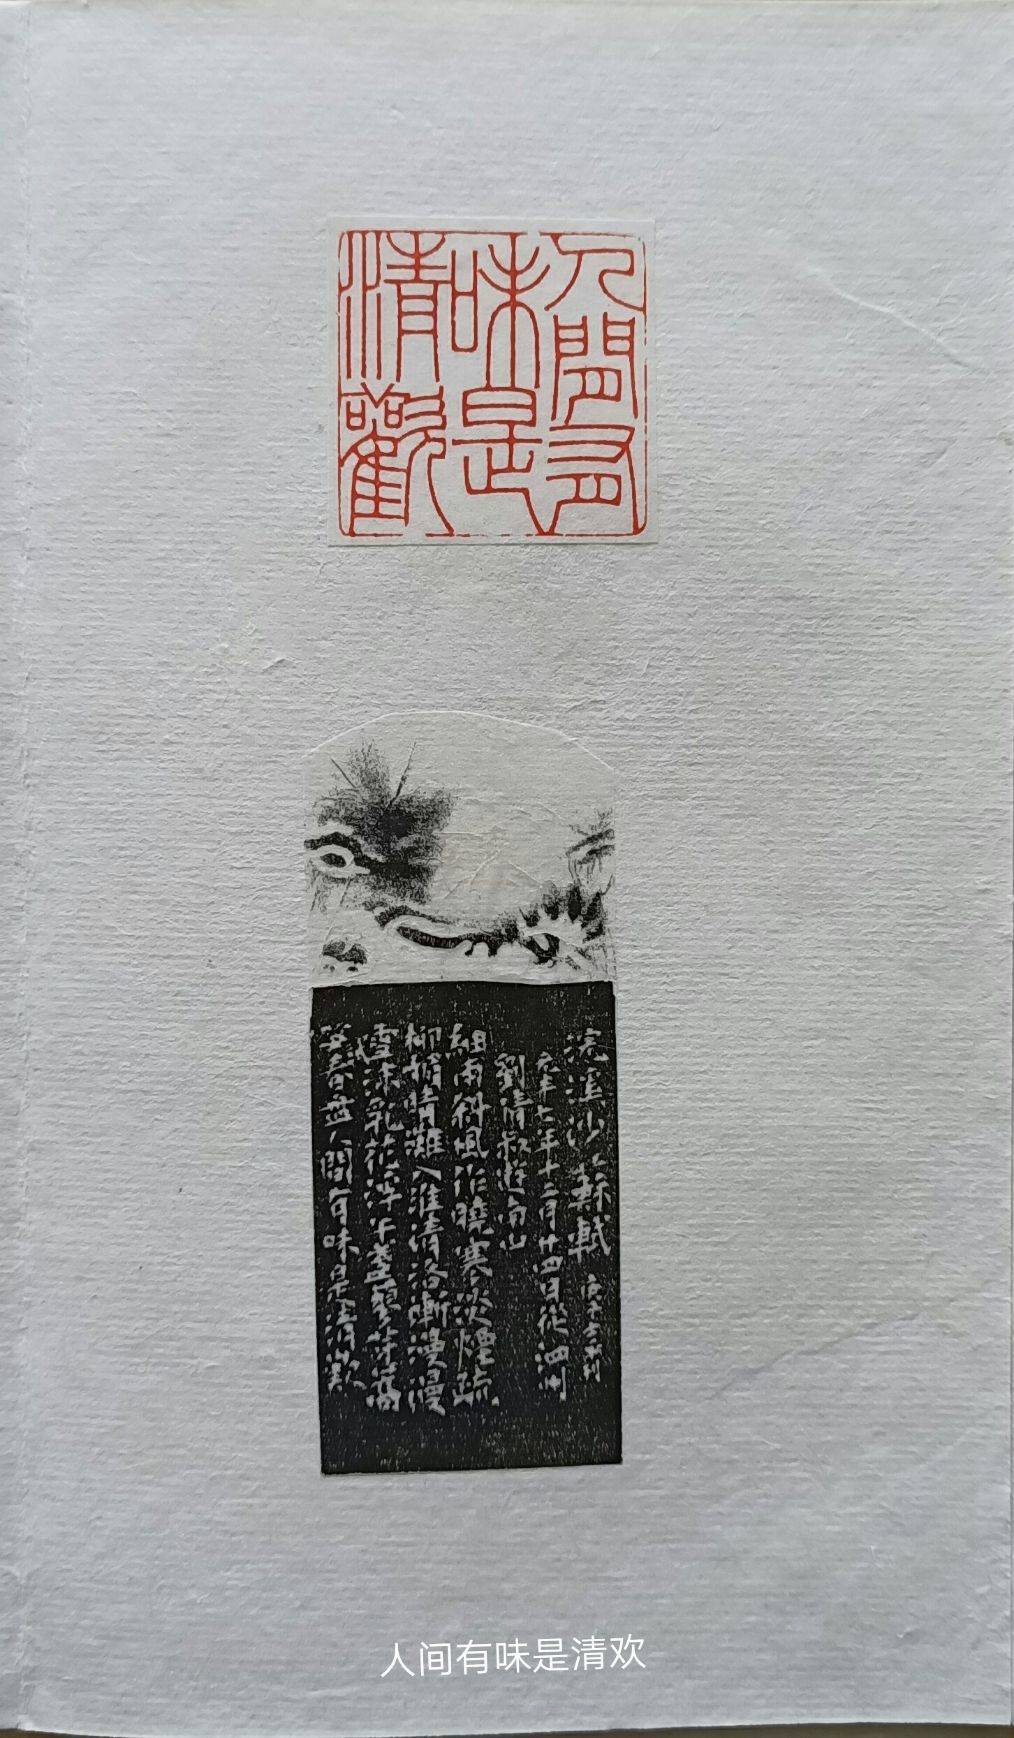 人間有
味是
清歡
浣溪沙 蘇軾 庚子
元丰七年十二月廿四日從泗州
劉倩叔遊南山
細雨斜風作曉寒淡煙疏
柳媚晴灘入淮清洛漸漫漫
雪沫乳花浮午盞蓼茸蒿
筍試春盤人間有味是清歡
人间有味是清欢